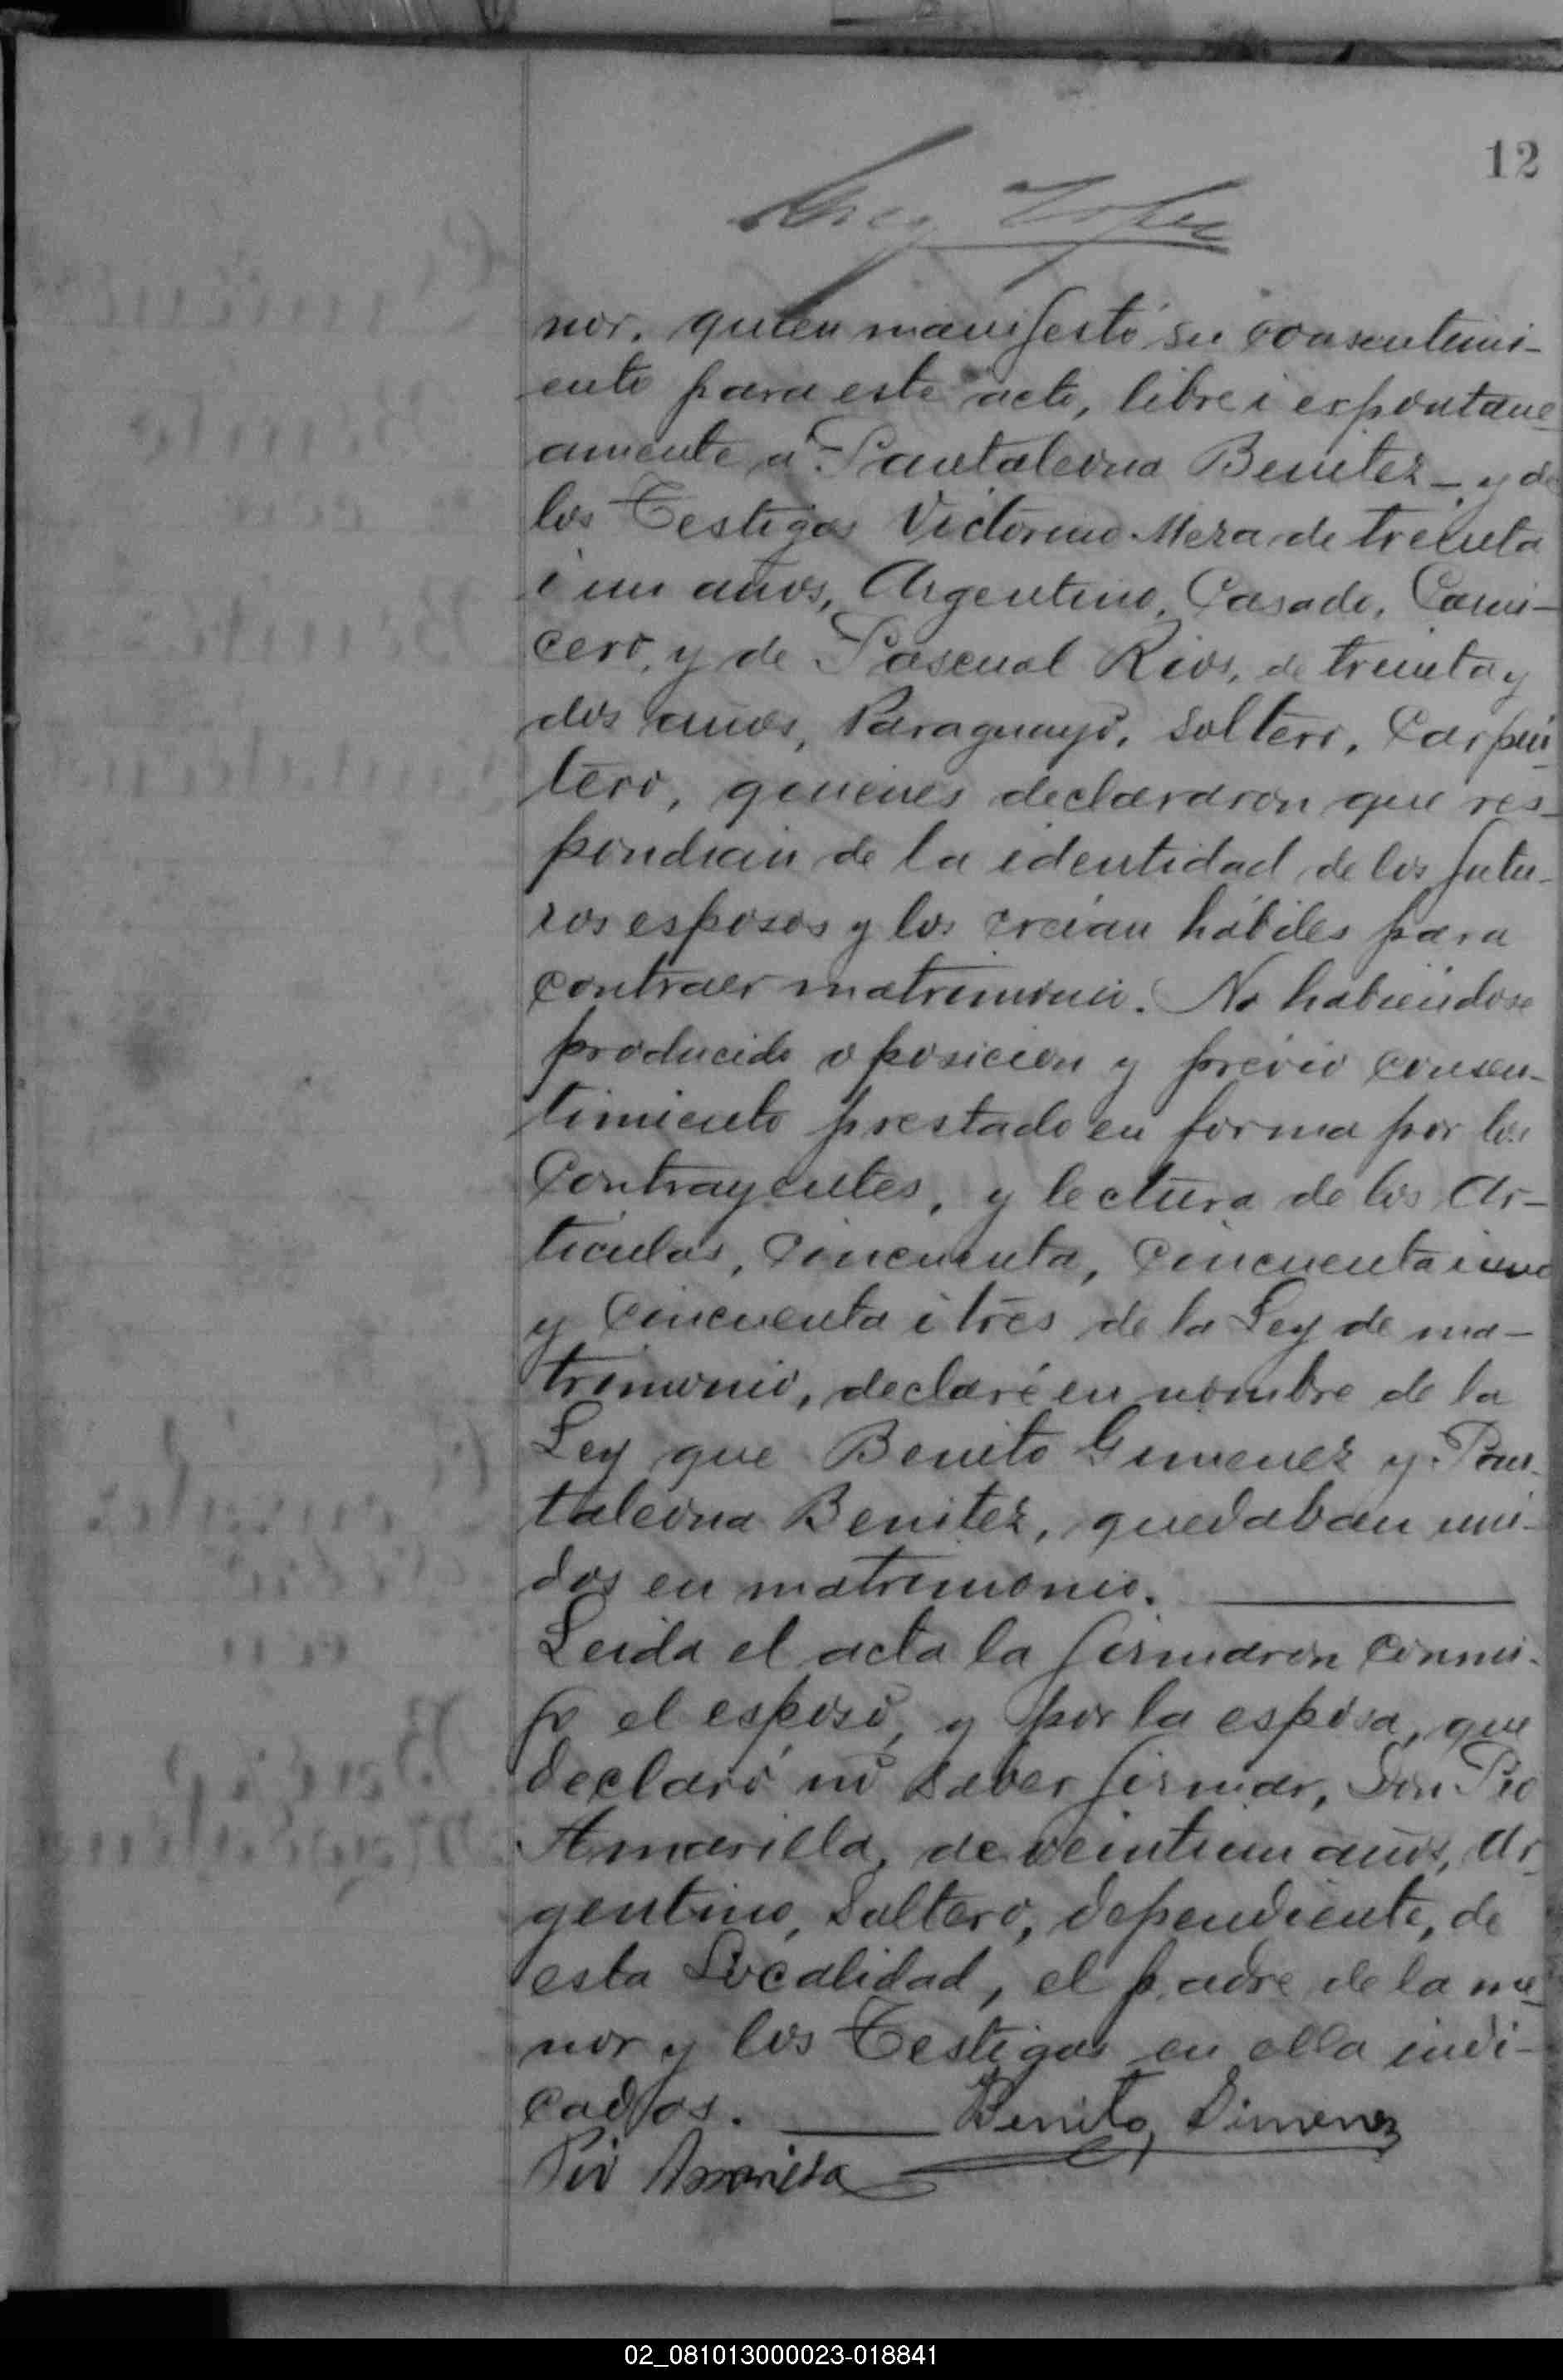 12
nor. quien manifestó su consentimi-
ento para este acto, libre i espontane-
amente a Pantaleona Benitez - y de
los Testigos Victorino Meza de treinta
i un años, Argentino, Casado, Carni-
cero, y de Pascual Rios, de treinta y
dos años, Paraguayo, soltero, Carpin-
tero, quienes declararon que res-
pondian de la identidad de los futu-
ros esposos y los creian hábiles para
contraer matrimonio. No habiendose
producido oposicion y previo consen-
timiento prestado en forma por los
Contrayentes, y lectura de los Ar-
ticulos, Cincuenta, Cincuenta i uno
y Cincuenta i tres de la Ley de ma-
trimonio, declaré en nombre de la
Ley que Benito Gimenez y Pan-
taleona Benitez, quedaban uni-
dos en matrimonio.
Leida el acta la firmaron conmi-
go el esposo, y por la esposa, que
declaró no saber firmar, Don Pio
Amarilla, de veintiun años, Ar-
gentino, Soltero, dependiente, de
esta Localidad, el padre de la me-
nor y los Testigos en ella indi-
cados. Benito Simenez
Pio Amarilla
02_081013000023-018841